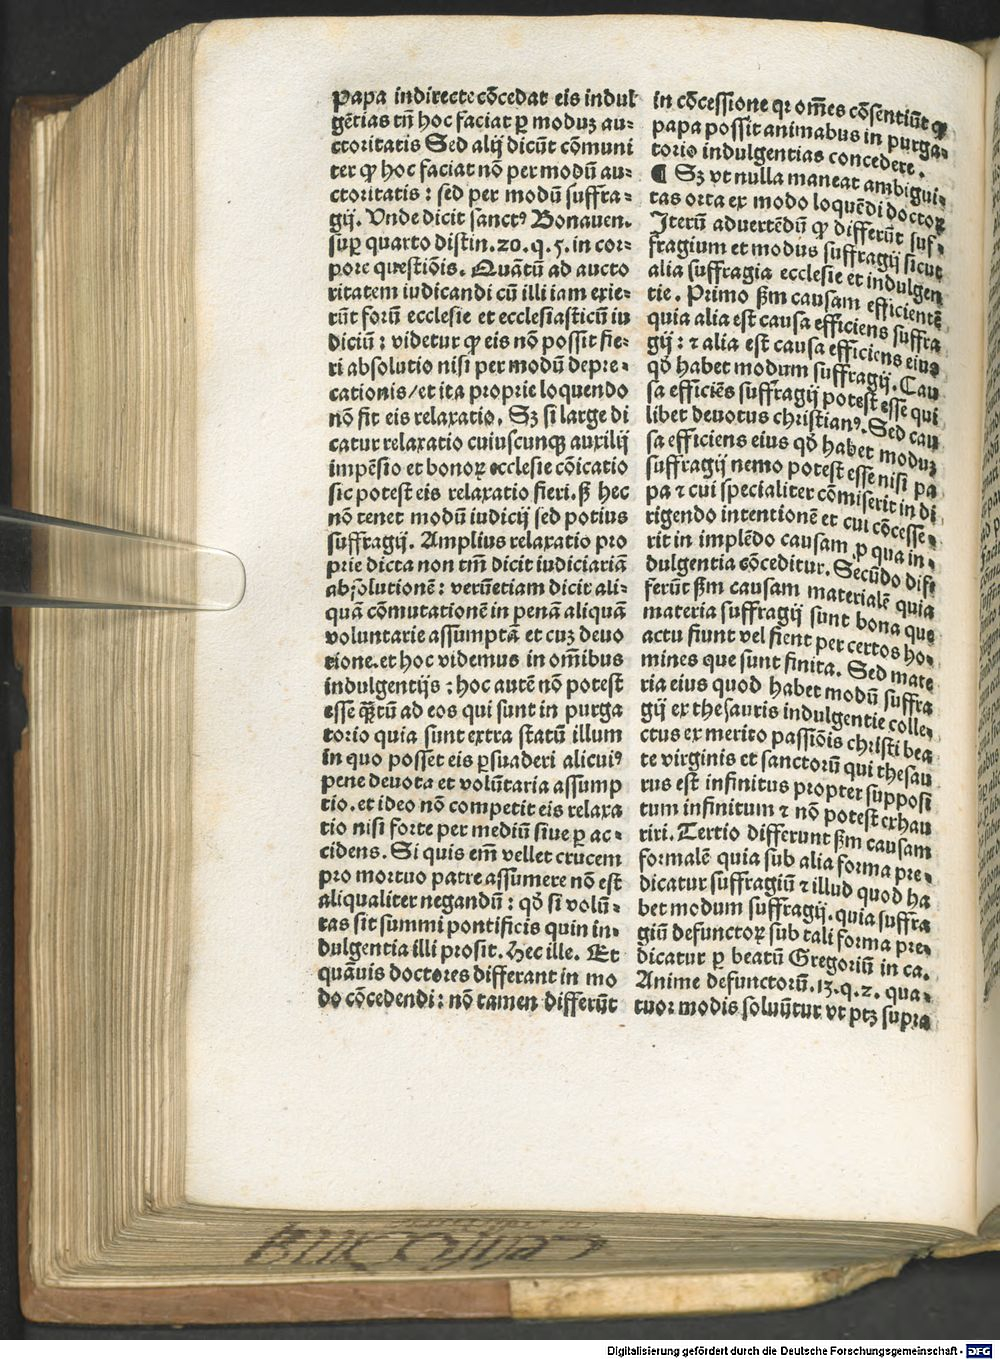 papa indirecte cōcedat eis indul
gētias tn̄ hoc faciat ꝑ moduꝫ au⸗
ctoritatis Sed alij dicūt cōmuni
ter ꝙ hoc faciat nō per modū au⸗
ctoritatis : sed per modū suffra⸗
gij. Unde dicit sanctꝰ Bonauen.
suꝑ quarto distin. 20. q. 5. in cor⸗
pore questiōis. Quātū ad aucto
ritatem iudicandi cū illi iam exie⸗
rūt forū ecclesie et ecclesiasticū iu
diciū : videtur ꝙ eis nō possit fie⸗
ri absolutio nisi per modū depre⸗
cationis/et ita proprie loquendo
nō fit eis relaxatio. Sꝫ si large di
catur relaxatio cuiuscunqꝫ auxilij
impēsio et bonoꝝ ecclesie cōicatio
sic potest eis relaxatio fieri. sꝫ hec
nō tenet modū iudicij sed potius
suffragij. Amplius relaxatio pro
prie dicta non tm̄ dicit iudiciariā
absolutionē : verūetiam dicit ali⸗
quā cōmutationē in penā aliquā
voluntarie assumptā et cuꝫ deuo
tione. et hoc videmus in om̄ibus
indulgentijs : hoc autē nō potest
esse qᷓꝫtū ad eos qui sunt in purga
torio quia sunt extra statū illum
in quo posset eis ꝑsuaderi alicuiꝰ
pene deuota et volūtaria assump
tio. et ideo nō competit eis relaxa
tio nisi forte per mediū siue ꝑ ac⸗
cidens. Si quis em̄ vellet crucem
pro mortuo patre assumere nō est
aliqualiter negandū : qḋ si volū⸗
tas sit summi pontificis quin in⸗
dulgentia illi prosit. Hec ille. Et
quāuis doctores differant in mo
do cōcedendi : nō tamen differūt
in cōcessione qꝛ om̄es cōsentiūt ꝙ
papa possit animabus in purga⸗
torio indulgentias concedere.
¶ Sꝫ vt nulla maneat ambigui⸗
tas orta ex modo loquēdi doctoꝝ
Iterū aduertēdū ꝙ differūt suf⸗
fragium et modus suffragij sicut
alia suffragia ecclesie et indulgen
tie. Primo ẜm causam efficientē
quia alia est causa efficiens suffra
gij : ⁊ alia est causa efficiens eius
qḋ habet modum suffragij. Cau
sa efficiēs suffragij potest esse qui
libet deuotus christianꝰ. Sed cau
sa efficiens eius qḋ habet moduꝫ
suffragij nemo potest esse nisi pa
pa ⁊ cui specialiter cōmiserit in di
rigendo intentionē et cui cōcesse⸗
rit in implēdo causam ꝓ qua in⸗
dulgentia cōceditur. Secūdo dif
ferūt ẜm causam materialē quia
materia suffragij sunt bona que
actu fiunt vel fient per certos ho⸗
mines que sunt finita. Sed mate
ria eius quod habet modū suffra
gij ex thesauris indulgentie colle⸗
ctus ex merito passiōis christi bea
te virginis et sanctorū qui thesau
rus est infinitus propter supposi
tum infinitum ⁊ nō potest exhau
riri. Tertio differunt ẜm causam
formalē quia sub alia forma pre⸗
dicatur suffragiū ⁊ illud quod ha
bet modum suffragij. quia suffra
giū defunctoꝝ sub tali forma pre⸗
dicatur ꝑ beatū Gregoriū in ca.
Anime defunctorū. 13. q. 2. qua⸗
tuor modis soluūtur vt ptꝫ supra
Digitalisierung gefördert durch die Deutsche Forschungsgemeinschaft - DFG